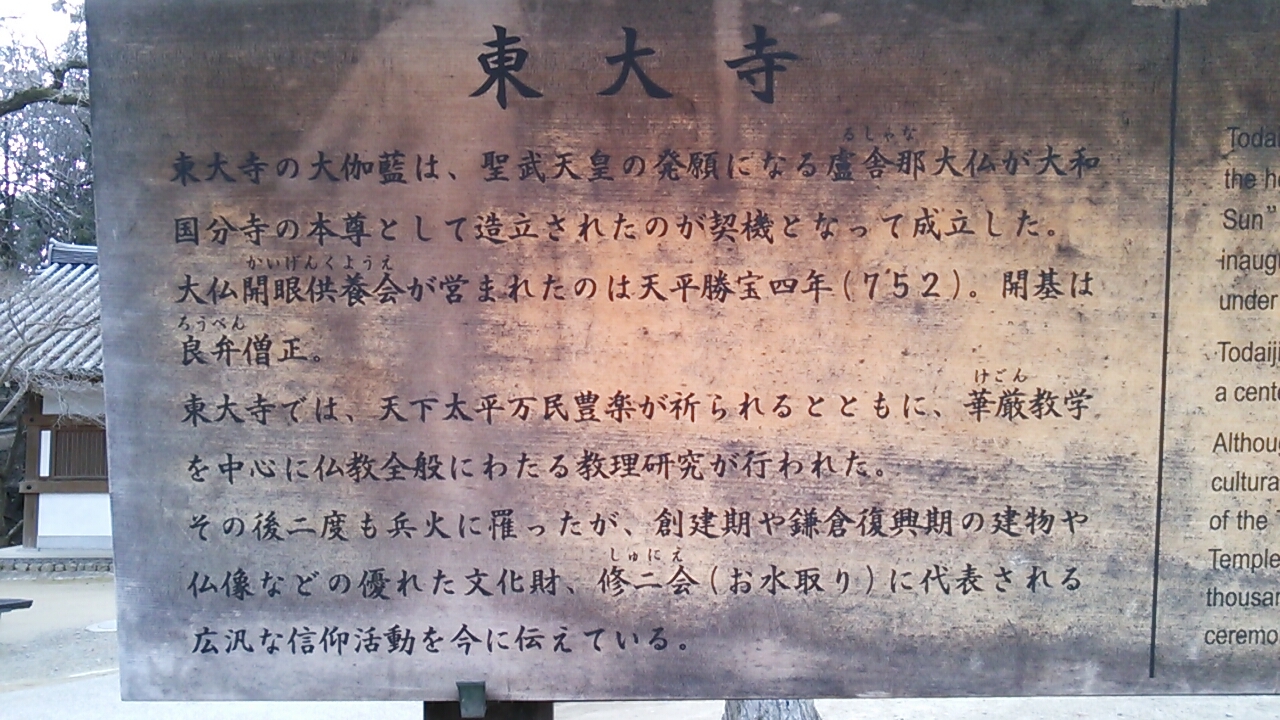 東大寺
るしゃな
東大寺の大伽藍は、聖武天皇の発願になる盧舎那大仏が大和
国分寺の本尊として造立されたのが契機となって成立した。
かいげんくようえ
大仏開眼供養会が営まれたのは天平勝宝四年(752)。開基は
ろうべん
良弁僧正。
けごん
東大寺では、天下太平万民豊楽が祈られるとともに、華厳教学
を中心に仏教全般にわたる教理研究が行われた。
その後二度も兵火に罹ったが、創建期や鎌倉復興期の建物や
しゅにえ
仏像などの優れた文化財、修二会(お水取り)に代表される
広汎な信仰活動を今に伝えている。
the
Sun"
under
a
of the
Temple